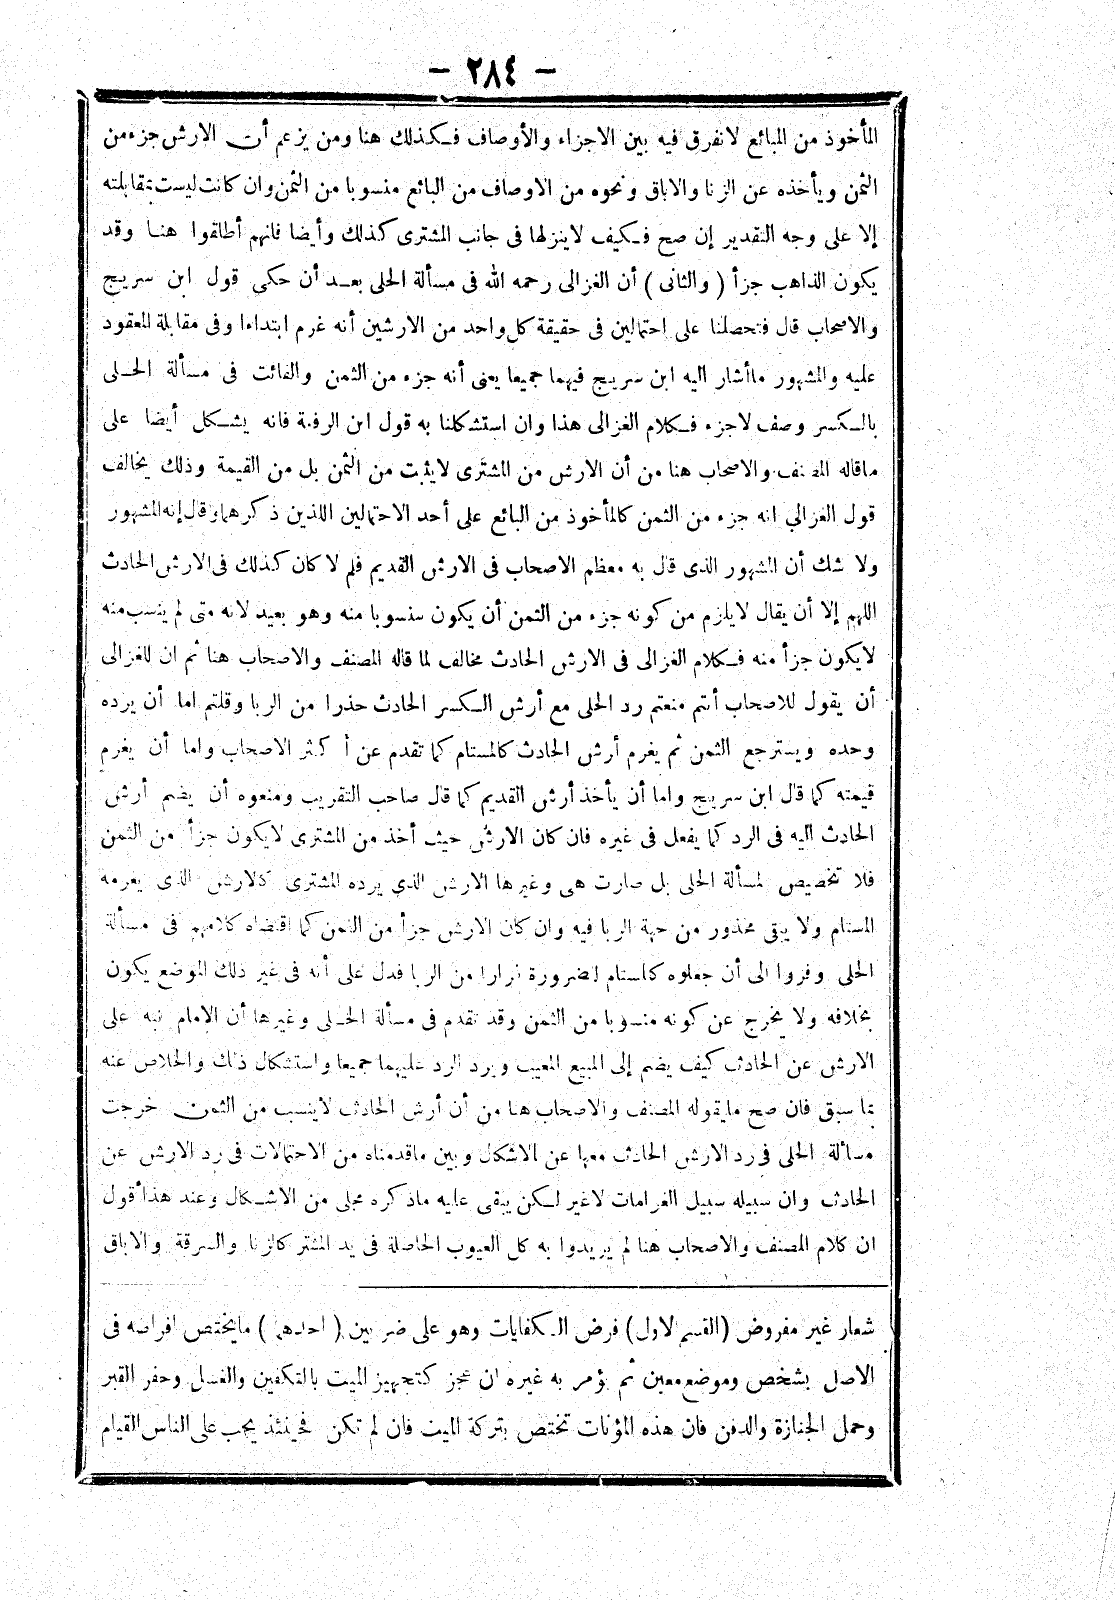 - ٢٨٤ -
المأخوذ من البائع لانفرق فيه بين الاجزاء والأوصاف فكذلك هنا ومن يزعم أن الارش جزء من
الثمن ويأخذه عن الزنا والاباق ونحوه من الاوصاف من البائع منسوبا من الثمن وان كانت ليست بمقابلته
إلا على وجه التقدير إن صح فكيف لاينزلها فى جانب المشترى كذلك وأيضا فانهم أطلقوا هنا وقد
يكون الذاهب جزأ ( والثانى ) أن الغزالى رحمه الله فى مسألة الحلى بعد أن حكى قول ابن سريج
والاصحاب قال فتحصلنا على احتمالين فى حقيقة كل واحد من الارشين أنه غرم ابتداءا وفى مقابلة المعقود
عليه والمشهور ماأشار اليه ابن سريج فيهما جميعا يعنى أنه جزء من الثمن والفائت فى مسألة الحلى
بالكسر وصف لاجزء فكلام الغزالى هذا وان استشكلنا به قول ابن الرفعة فانه يشكل أيضا على
ماقاله المصنف والاصحاب هنا من أن الارش من المشترى لايثبت من الثمن بل من القيمة وذلك يخالف
قول الغزالي انه جزء من الثمن كالمأخوذ من البائع على أحد الاحتمالين اللذين ذكرهما وقال إنه المشهور
ولا شك أن المشهور الذى قال به معظم الاصحاب فى الارش القديم فلم لا كان كذلك فى الارش الحادث
اللهم إلا أن يقال لايلزم من كونه جزء من الثمن أن يكون منسوبا منه وهو بعيد لانه متى لم ينسب منه
لايكون جزأ منه فكلام الغزالى فى الارش الحادث مخالف لما قاله المصنف والاصحاب هنا ثم ان للغزالى
أن يقول للاصحاب أنتم منعتم رد الحلى مع أرش الكسر الحادث حذرا من الربا وقلتم اما أن يرده
وحده ويسترجع الثمن ثم يغرم أرش الحادث كالمستام كما تقدم عن أكثر الاصحاب واما أن يغرم
قيمته كما قال ابن سريج واما أن يأخذ أرش القديم كما قال صاحب التقريب ومنعوه أن يضم أرش
الحادث اليه فى الرد كما يفعل فى غيره فان كان الارش حيث أخذ من المشترى لايكون جزأ من الثمن
فلا تخصيص لمسألة الحلى بل صارت هى وغيرها الارش الذي يرده المشترى كالارش الذى يغرمه
المستام ولا يبقى محذور من جهة الربا فيه وان كان الارش جزأ من الثمن كما اقتضاه كلامهم فى مسألة
الحلى وفروا الى أن جعلوه كالمستام لضرورة فرارا من الربا فدل على أنه فى غير ذلك الموضع يكون
بخلافه ولا يخرج عن كونه منسوبا من الثمن وقد تقدم فى مسألة الحلى وغيرها أن الإمام نبه على
الارش عن الحادث كيف يضم إلى المبيع المعيب ويرد الرد عليهما جميعا واستشكال ذلك والخلاص عنه
بما سبق فان صح مايقوله المصنف والاصحاب هنا من أن أرش الحادث لاينسب من الثمن خرجت
مسألة الحلى فى رد الارش الحادث معها عن الاشكال وبين ماقدمناه من الاحتمالات فى رد الارش عن
الحادث وان سبيله سبيل الغرامات لاغير لكن يبقى عليه ماذكره مجلى من الاشكال وعند هذا أقول
ان كلام المصنف والاصحاب هنا لم يريدوا به كل العيوب الحاصلة فى يد المشتر كالزنا والسرقة والاباق
شعار غير مفروض (القسم الاول) فرض الكفايات وهو على ضربين ( احدهما ) مايختص افراضه فى
الاصل بشخص وموضع معين ثم يؤمر به غيره ان عجز كتجهيز الميت بالتكفين والغسل وحفر القبر
وحمل الجنازة والدفن فان هذه المؤنات تختص بتركة الميت فان لم تكن فحينئذ يجب على الناس القيام